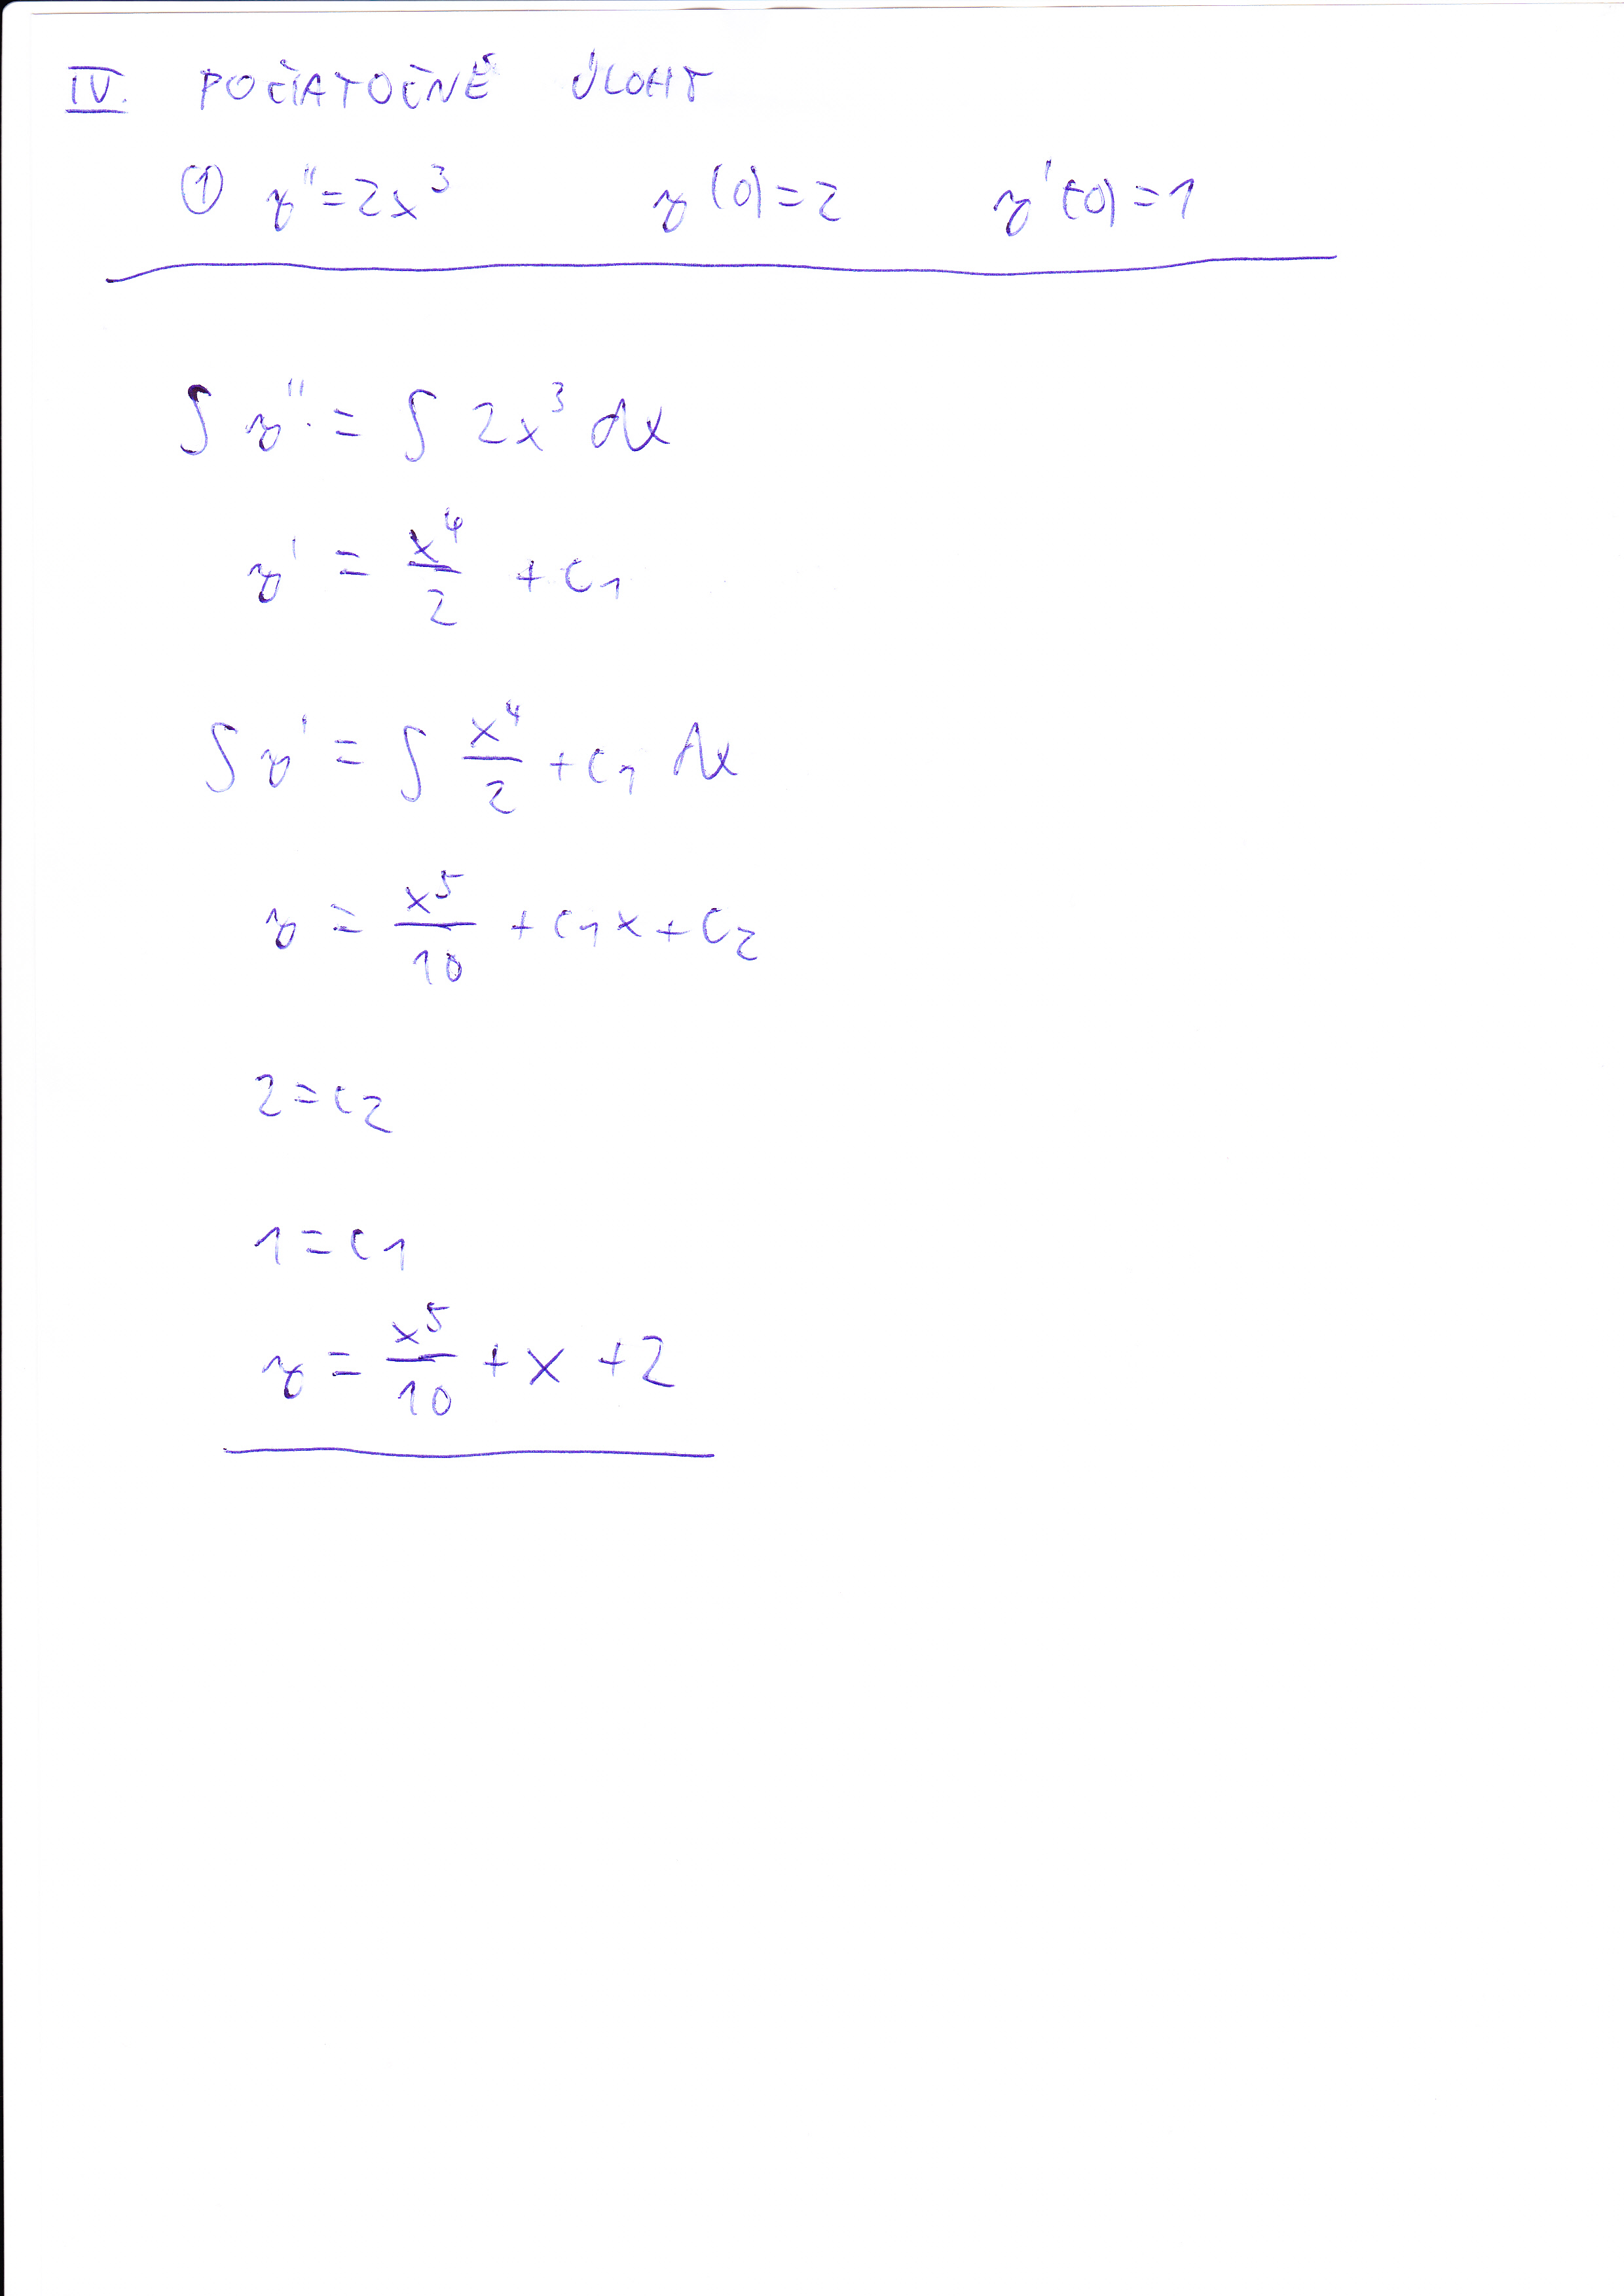 IV. POČIATOČNÉ ÚLOHY
① y'' = 2x³ y(0) = 2 y'(0) = 1
∫ y'' = ∫ 2x³ dx
y' = x⁴/2 + c₁
∫ y' = ∫ x⁴/2 + c₁ dx
y = x⁵/10 + c₁x + c₂
2 = c₂
1 = c₁
y = x⁵/10 + x + 2